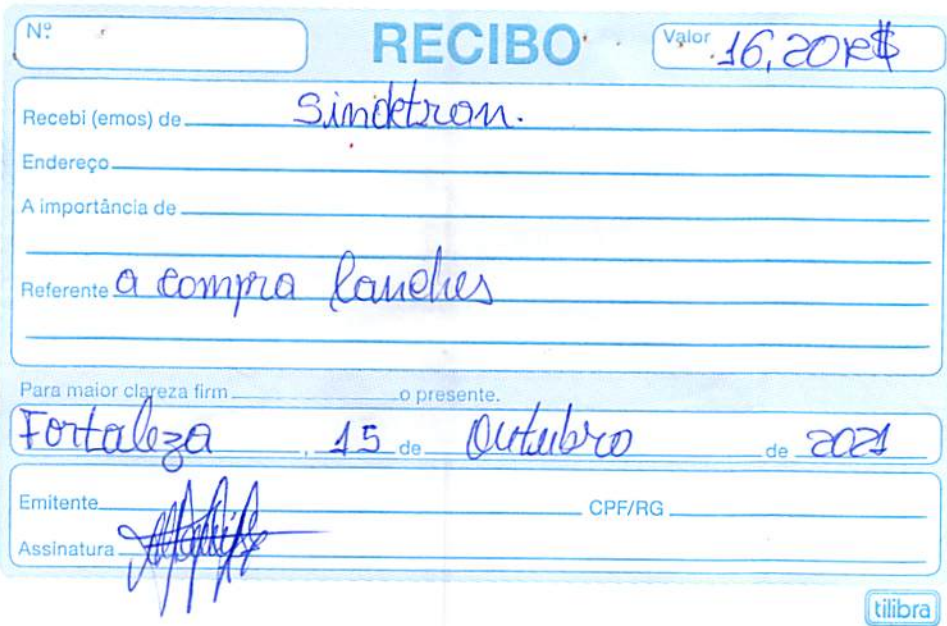 Nº RECIBO Valor 16,20R$
Recebi (emos) de Sindetran.
Endereço
A importância de
Referente a compra lanches
Para maior clareza firm o presente.
Fortaleza, 15 de Outubro de 2021
Emitente CPF/RG
Assinatura
tilibra